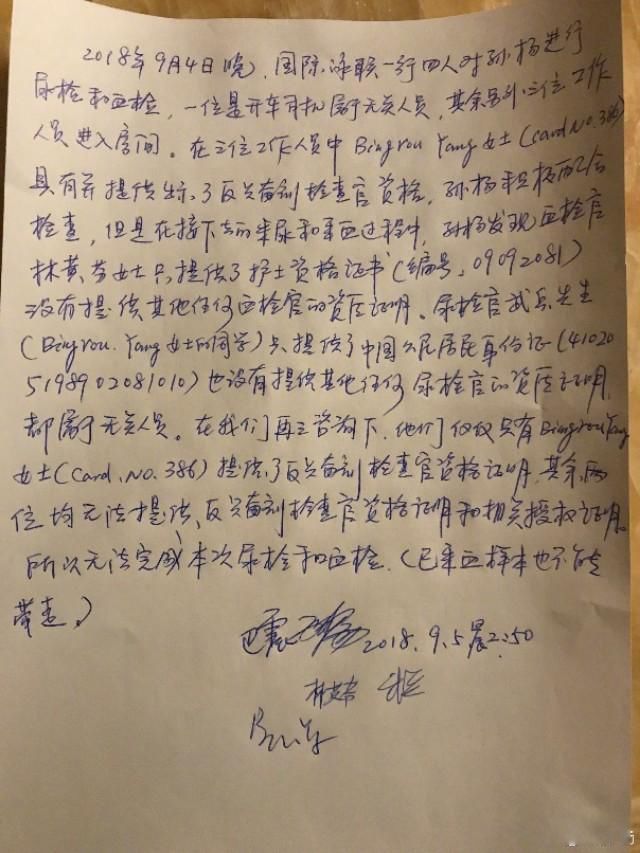 2018年9月4日晚，国际泳联一行四人对孙杨进行
尿检和血检，一位是开车司机属于无关人员，其余另外三位工作
人员进入房间。在三位工作人员中Bingrou Yang女士(card.No.386)
具有并提供出示了反兴奋剂检查官资格，孙杨积极配合
检查，但是在接下去的采尿和采血过程中，孙杨发现血检官
林 女士只提供了护士资格证书(编号：09092081)
没有提供其他任何血检官的资质证明。尿检官 先生
(Bingrou.Yang女士的同学)只提供了中国公民居民身份证(
)也没有提供其他任何尿检官的资质证明
都属于无关人员。在我们再三咨询下，他们仅仅只有Bingrou Yang
女士(Card.No.386)提供了反兴奋剂检查官资格证明，其余两
位均无法提供反兴奋剂检查官资格证明和相关授权证明。
所以无法完成本次尿检和血检.(已采血样本也不能
带走。)
2018.9.5晨2:50